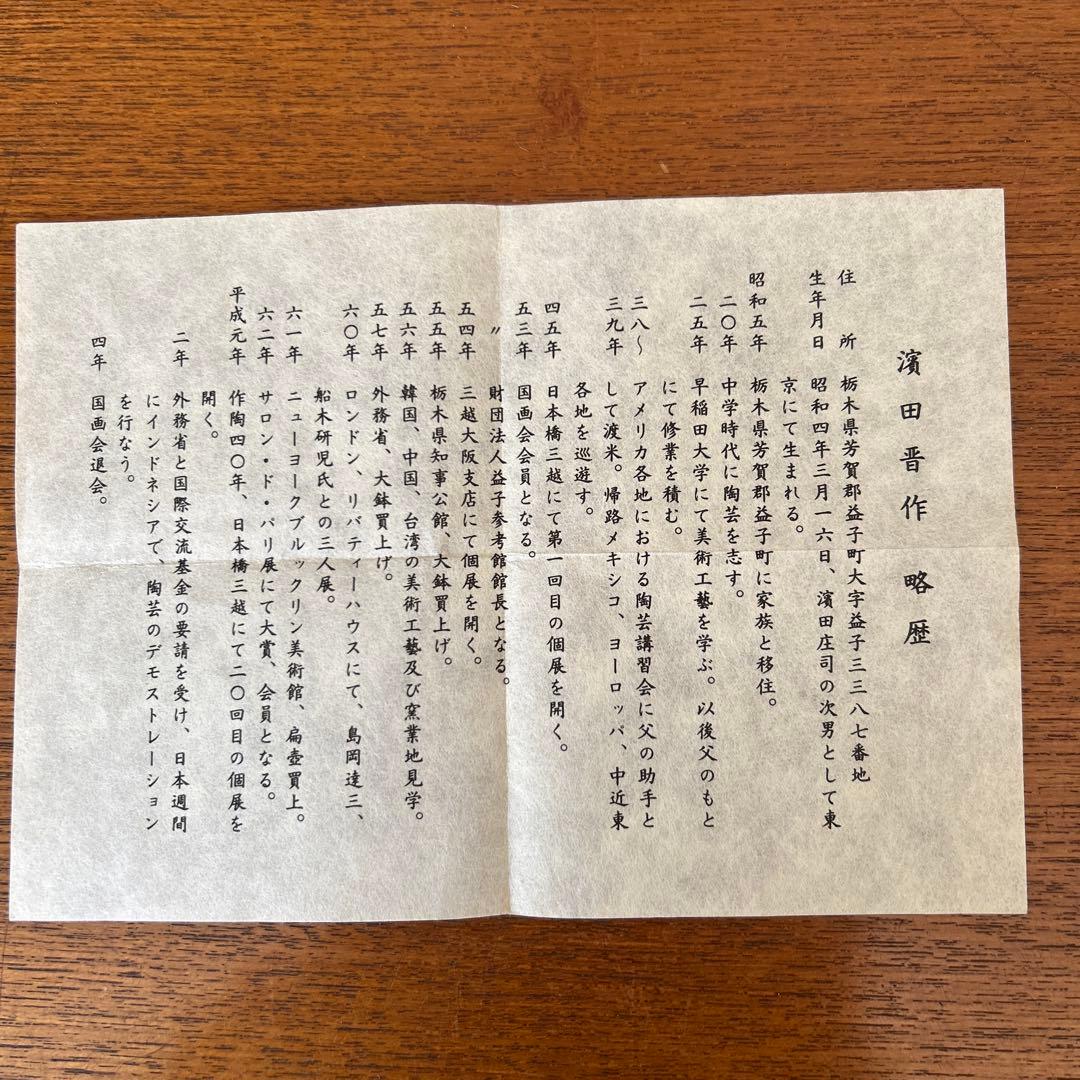 濱田晋作 略歴
住所 栃木県芳賀郡益子町大字益子三三八七番地
生年月日 昭和四年三月一六日、濱田庄司の次男として東
京にて生まれる。
昭和五年 栃木県芳賀郡益子町に家族と移住。
二〇年 中学時代に陶芸を志す。
二五年 早稲田大学にて美術工藝を学ぶ。以後父のもと
にて修業を積む。
三八〜 アメリカ各地における陶芸講習会に父の助手と
三九年 して渡米。帰路メキシコ、ヨーロッパ、中近東
各地を巡遊す。
四五年 日本橋三越にて第一回目の個展を開く。
五三年 国画会会員となる。
〃 財団法人益子参考館館長となる。
五四年 三越大阪支店にて個展を開く。
五五年 栃木県知事公館、大鉢買上げ。
五六年 韓国、中国、台湾の美術工藝及び窯業地見学。
五七年 外務省、大鉢買上げ。
六〇年 ロンドン、リバティーハウスにて、島岡達三、
船木研児氏との三人展。
六一年 ニューヨークブルックリン美術館、扁壺買上。
六二年 サロン・ド・パリ展にて大賞、会員となる。
平成元年 作陶四〇年、日本橋三越にて二〇回目の個展を
開く。
二年 外務省と国際交流基金の要請を受け、日本週間
にインドネシアで、陶芸のデモストレーション
を行なう。
四年 国画会退会。